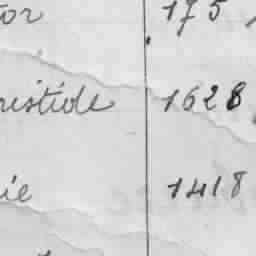 tor 175
ristide 1628
ie 1418